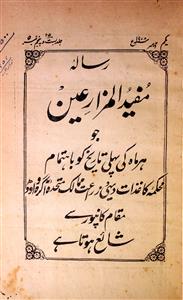 رسالہ
مفید المزارعین
جو
ہر ماہ کی پہلی تاریخ کو باہتمام
محکمہ کاغذات دیہی زراعت ممالک متحدہ آگرہ و اودھ
مقام کانپور سے
شائع ہوتا ہے